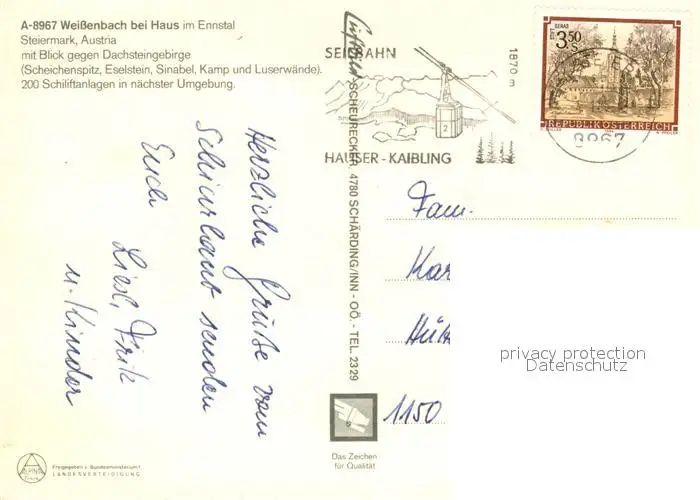 A-8967 Weißenbach bei Haus im Ennstal
Steiermark, Austria
mit Blick gegen Dachsteingebirge
(Scheichenspitz, Eselstein, Sinabel, Kamp und Luserwände).
200 Schiliftanlagen in nächster Umgebung.
SEILBAHN
1870 m
2
HAUSER-KAIBLING
3.50
S
REPUBLIK ÖSTERREICH
8967
Herzliche Grüße vom
Schiurlaub senden
Euch
Liesl, Fritz
u. Kinder
SCHEURECKER, 4780 SCHÄRDING/INN - OÖ. - TEL. 2329
Fam.
Kar
Hüt
1150
privacy protection
Datenschutz
Das Zeichen
für Qualität
ALPINE
Freigegeben v. Bundesministerium f.
LANDESVERTEIDIGUNG